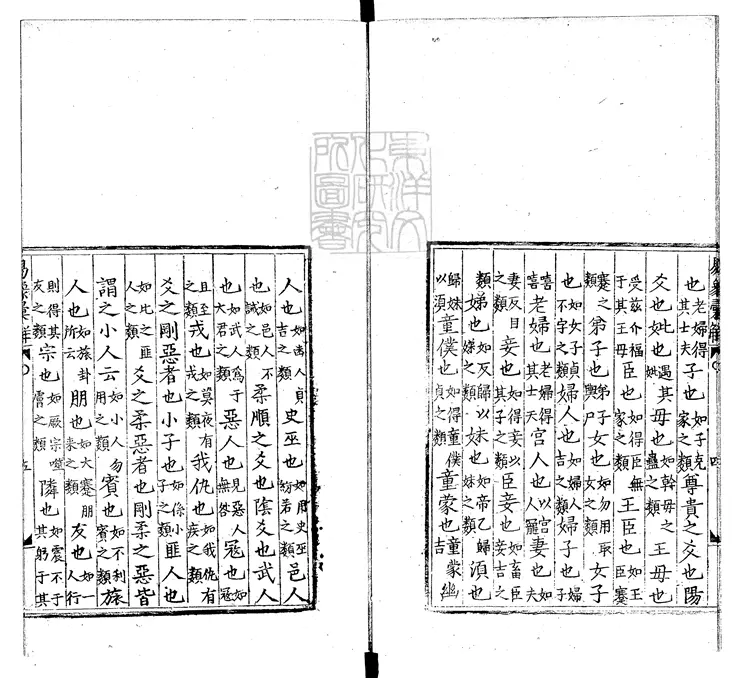 也老婦得其士夫子也如子克家之類尊貴之爻也陽
爻也妣也遇其妣母也如幹母之蠱之類王母也
受茲介福于其王母臣也如得臣無家之類王臣也如王臣蹇
蹇之類弟子也弟子輿尸子女也如勿用取女之類女子
也如女子貞不字之類婦人也如婦人吉之類婦子也如婦子
嘻嘻老婦也老婦得其士夫宮人也以宮人寵妻也如夫
妻反目之類妾也如得妾以其子之類臣妾也如畜臣妾吉之
類娣也如反歸以娣之類妹也如帝乙歸妹之類須也
歸妹以須童僕也如得童僕貞之類童蒙也童蒙吉幽
易象彙解
四
人也如幽人貞吉之類史巫也如用史巫紛若之類邑人
也如邑人不誡之類柔順之爻也陰爻也武人
也如武人為于大君之類惡人也見惡人無咎寇也如寇
且至之類戎也如莫夜有戎之類我仇也如我仇有疾之類
爻之剛惡者也小子也如係小子之類匪人也
如比之匪人之類爻之柔惡者也剛柔之惡皆
謂之小人云如小人勿用之類賓也如不利賓之類旅
人也如旅卦所云朋也如大蹇朋來之類友也如一人行
則得其友之類宗也如厥宗噬膚之類隣也如震不于其躬于其
易象彙解
五
東洋文
化研究
所圖書